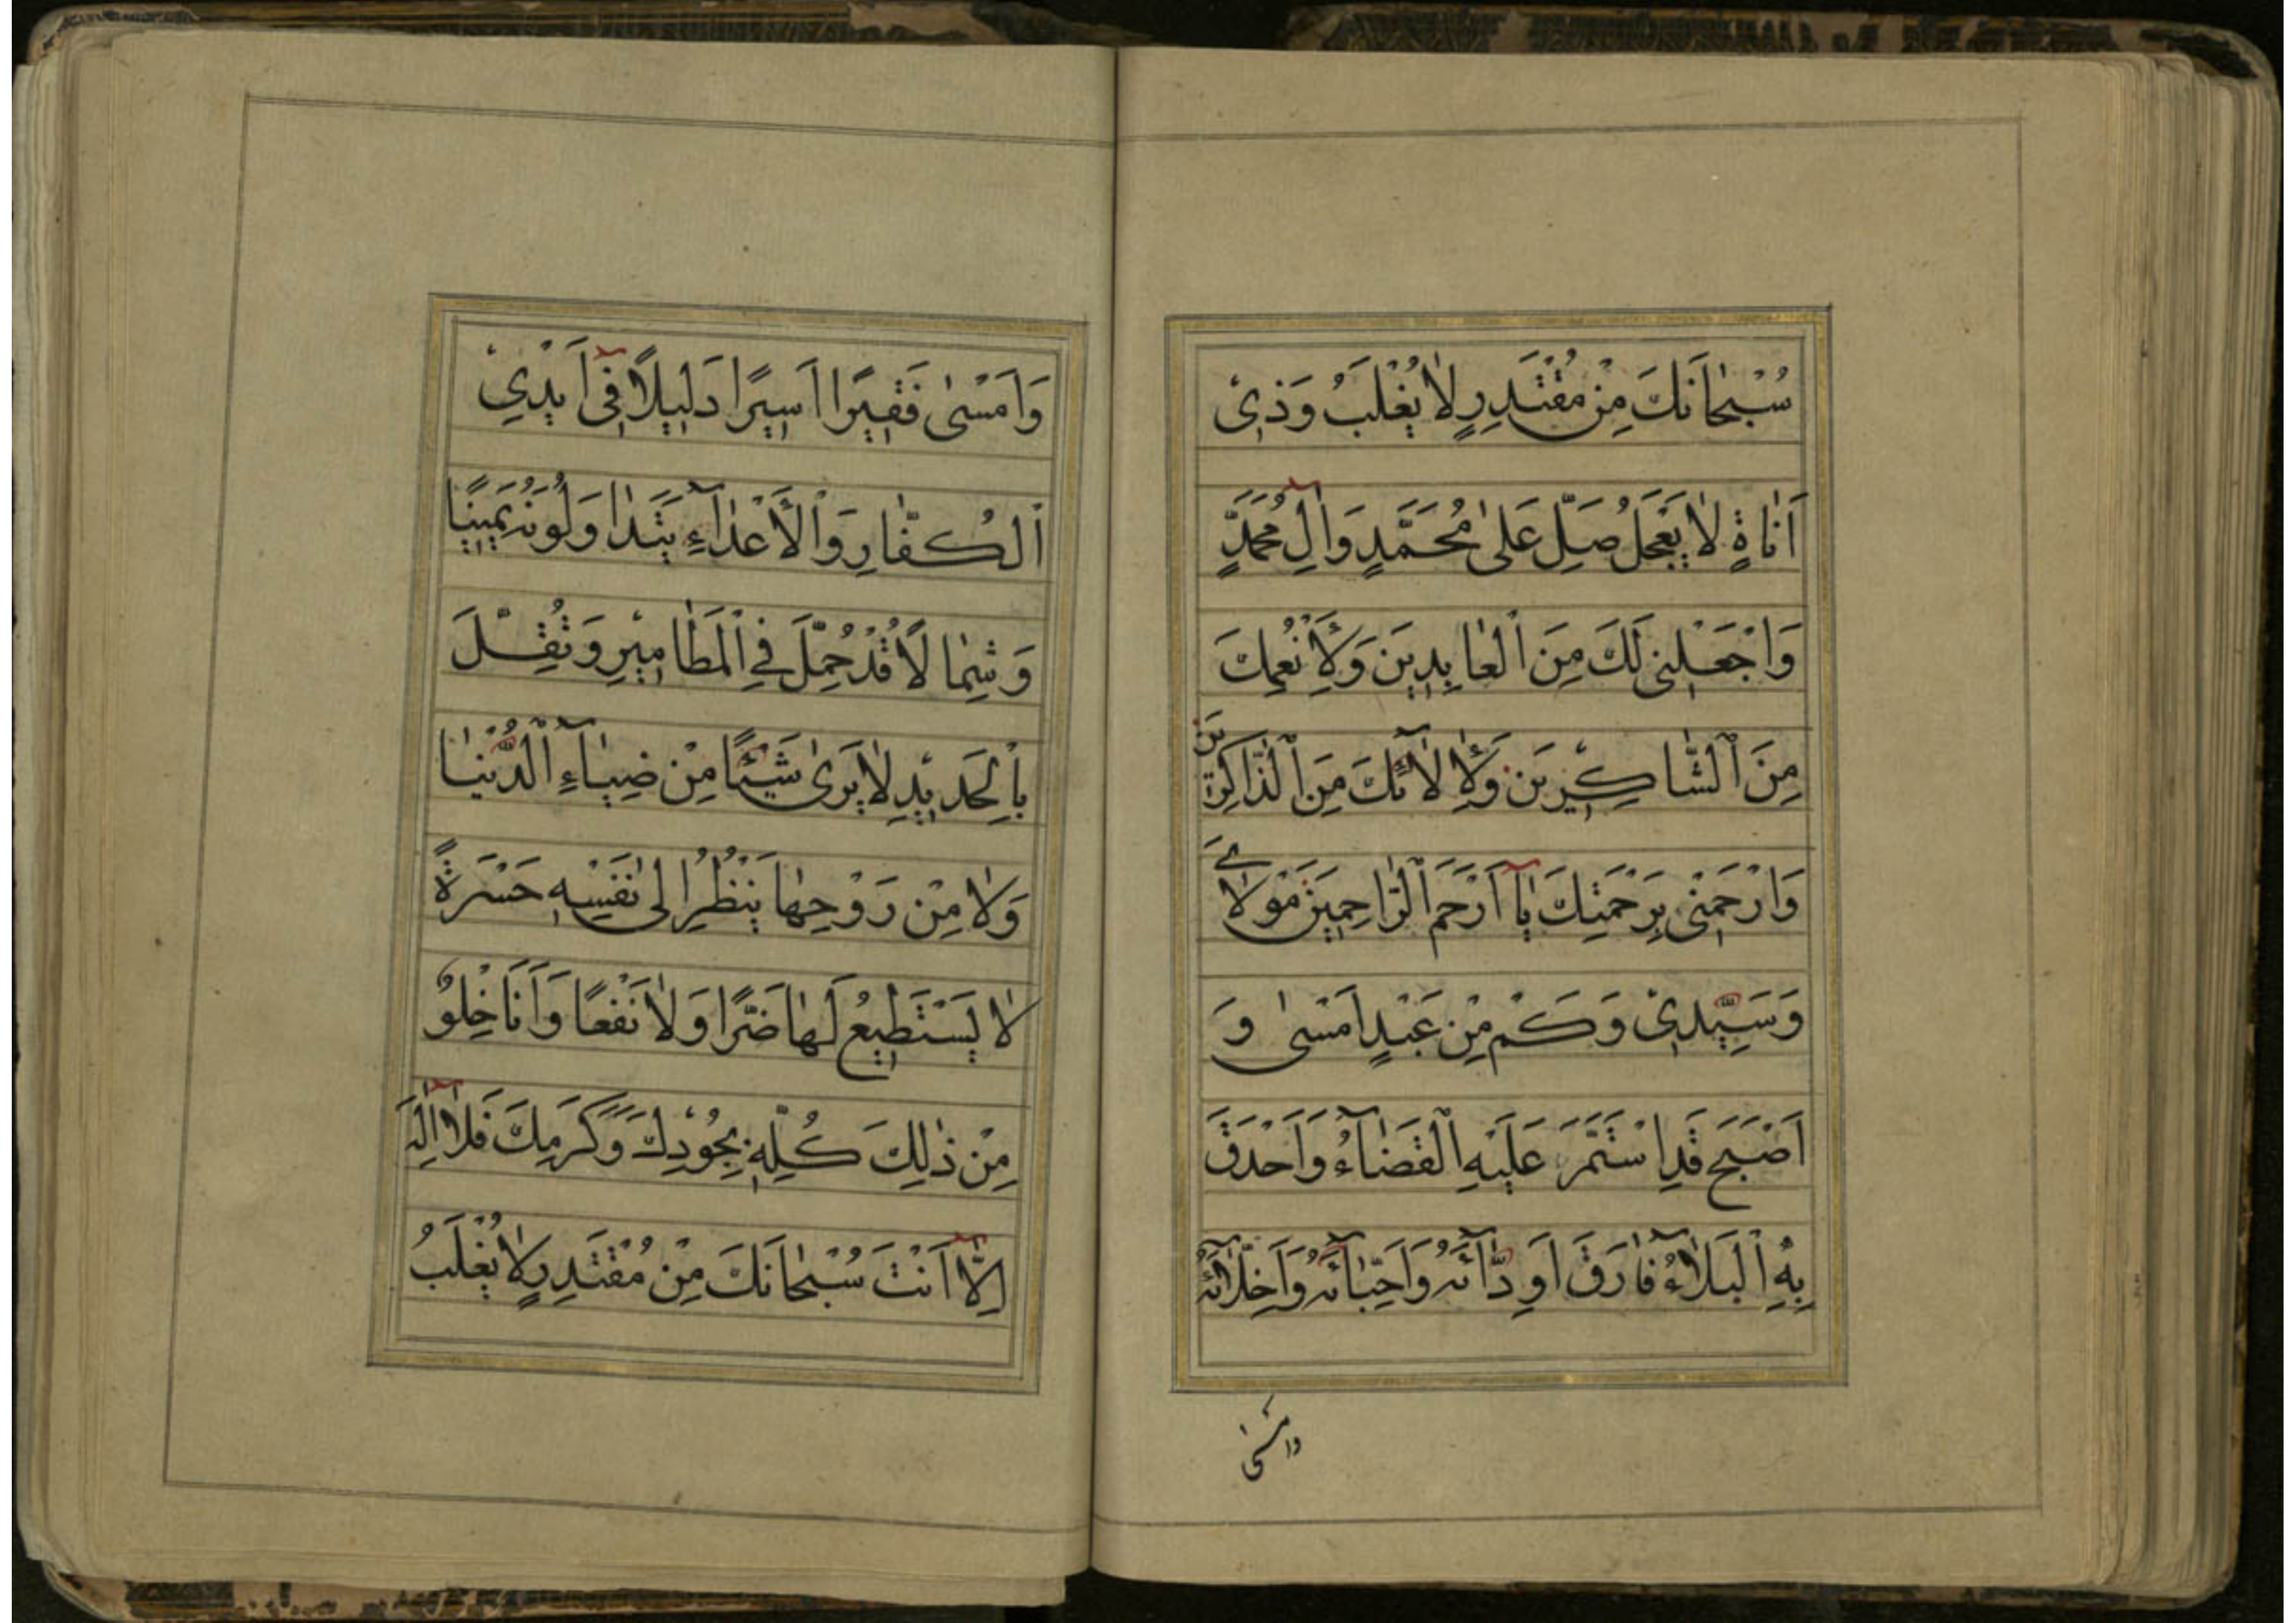 سُبْحَانَكَ مِنْ مُقْتَدِرٍ لَا يُغْلَبُ وَذِي
اَنَاةٍ لَا يَعْجَلُ صَلِّ عَلَى مُحَمَّدٍ وَاٰلِ مُحَمَّدٍ
وَاجْعَلْنِي لَكَ مِنَ الْعَابِدِينَ وَلِأَنْعُمِكَ
مِنَ الشَّاكِرِينَ وَلِاٰلَائِكَ مِنَ الذَّاكِرِينَ
وَارْحَمْنِي بِرَحْمَتِكَ يَا اَرْحَمَ الرَّاحِمِينَ مَوْلَايَ
وَسَيِّدِي وَكَمْ مِنْ عَبْدٍ اَمْسٰى وَ
اَصْبَحَ قَدِ اسْتَمَرَّ عَلَيْهِ الْقَضَاءُ وَاَحْدَقَ
بِهِ الْبَلَاءُ فَارَقَ اَوِدَّائَهُ وَاَحِبَّائَهُ وَاَخِلَّائَهُ
وامسى
وَاَمْسٰى فَقِيرًا اَسِيرًا دَلِيلًا فِي اَيْدِي
الْكُفَّارِ وَالْأَعْدَاءِ يَتَدَاوَلُونَهُ يَمِينًا
وَشِمَالًا قَدْ حُمِّلَ فِي الْمَطَامِيرِ وَثُقِّلَ
بِالْحَدِيدِ لَا يَرٰى شَيْئًا مِنْ ضِيَاءِ الدُّنْيَا
وَلَا مِنْ رَوْحِهَا يَنْظُرُ اِلٰى نَفْسِهِ حَسْرَةً
لَا يَسْتَطِيعُ لَهَا ضَرًّا وَلَا نَفْعًا وَاَنَا خِلْوٌ
مِنْ ذٰلِكَ كُلِّهِ بِجُودِكَ وَكَرَمِكَ فَلَا اِلٰهَ
اِلَّا اَنْتَ سُبْحَانَكَ مِنْ مُقْتَدِرٍ لَا يُغْلَبُ